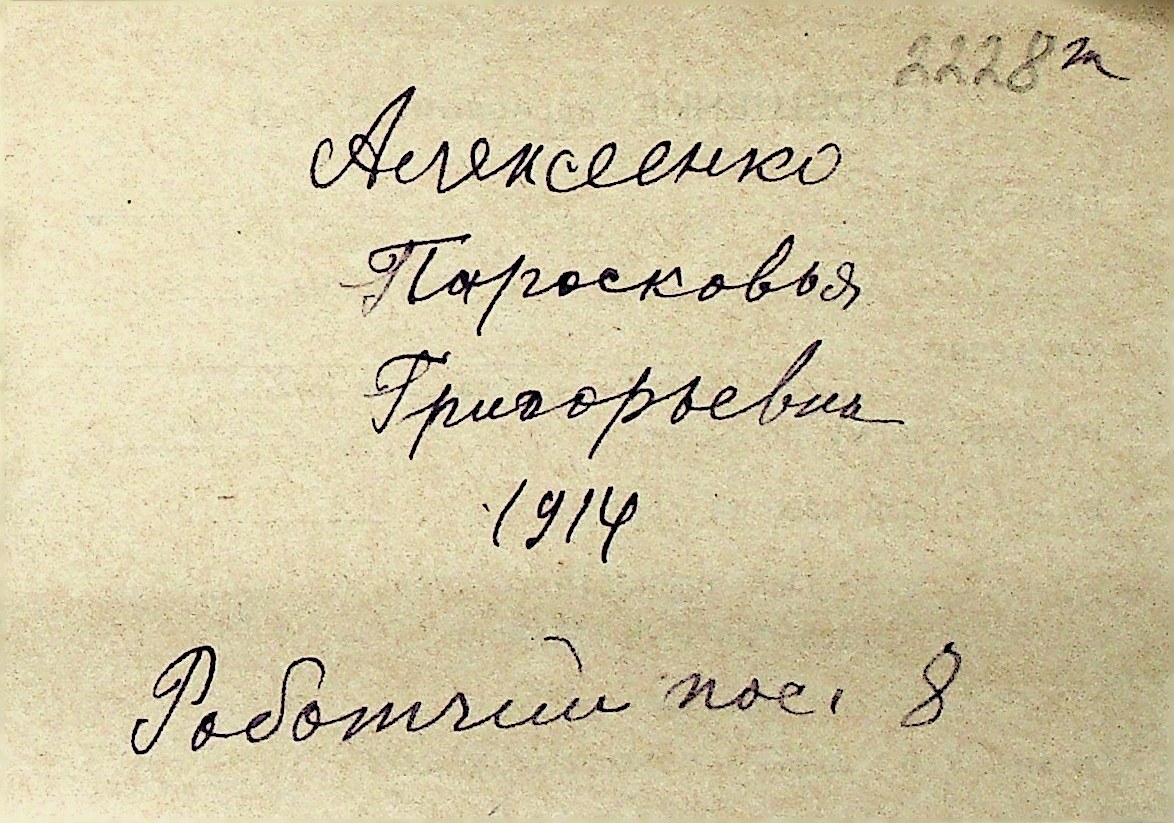 2228п
Алексеенко
Паросковья
Григорьевна
1914
Роботчий пос. 8